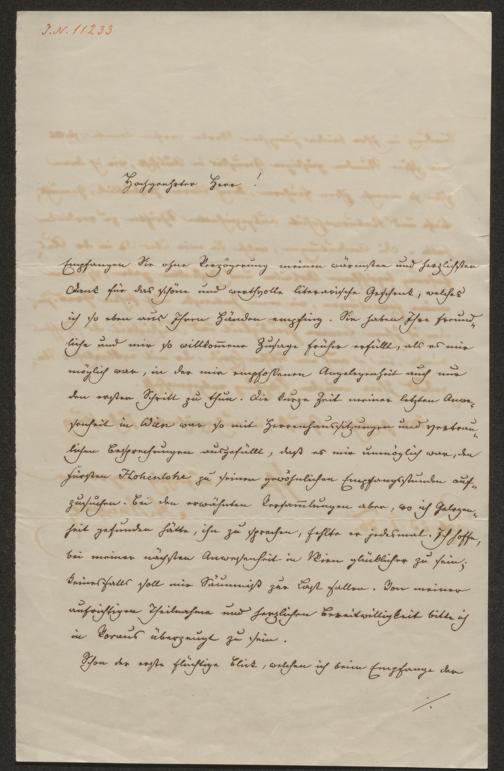 J.N. 11233
Hochgeehrter Herr!
Empfangen Sie ohne Verzögerung meinen wärmsten und herzlichsten
Dank für das schöne und werthvolle literarische Geschenk, welches
ich so eben aus Ihren Händen empfing. Sie haben Ihre freund-
liche und mir so willkommene Zusage früher erfüllt, als es mir
möglich war, in der mir empfohlenen Angelegenheit auch nur
den ersten Schritt zu thun. Die kurze Zeit meiner letzten Anwe-
senheit in Wien war so mit Herrenhaussitzungen und vertrau-
lichen Besprechungen ausgefüllt, daß es mir unmöglich war, den
Fürsten Hohenlohe zu seinen gewöhnlichen Empfangsstunden auf-
zusuchen. Bei den erwähnten Versammlungen aber, wo ich Gelegen-
heit gefunden hätte, ihn zu sprechen, fehlte er jedesmal. Ich hoffe,
bei meiner nächsten Anwesenheit in Wien glücklicher zu sein;
keinesfalls soll mir Säumniß zur Last fallen. Von meiner
aufrichtigen Theilnahme und herzlichen Bereitwilligkeit bitte ich
im Voraus überzeugt zu sein.
Schon der erste flüchtige Blick, welchen ich beim Empfange der
./.